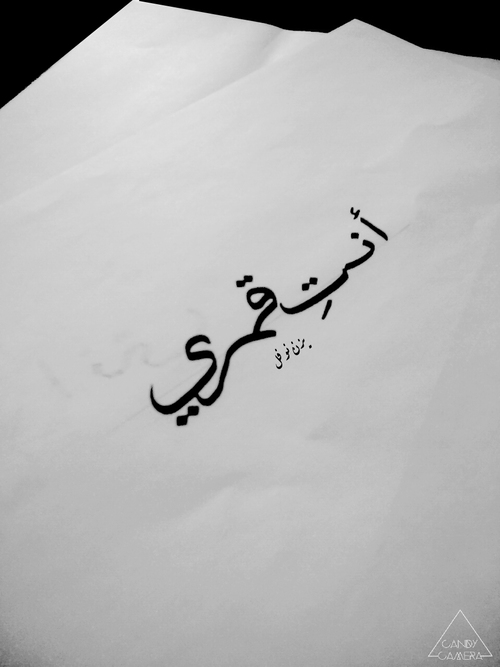 أنتِ قمري
نوفل
CANDY
CAMERA